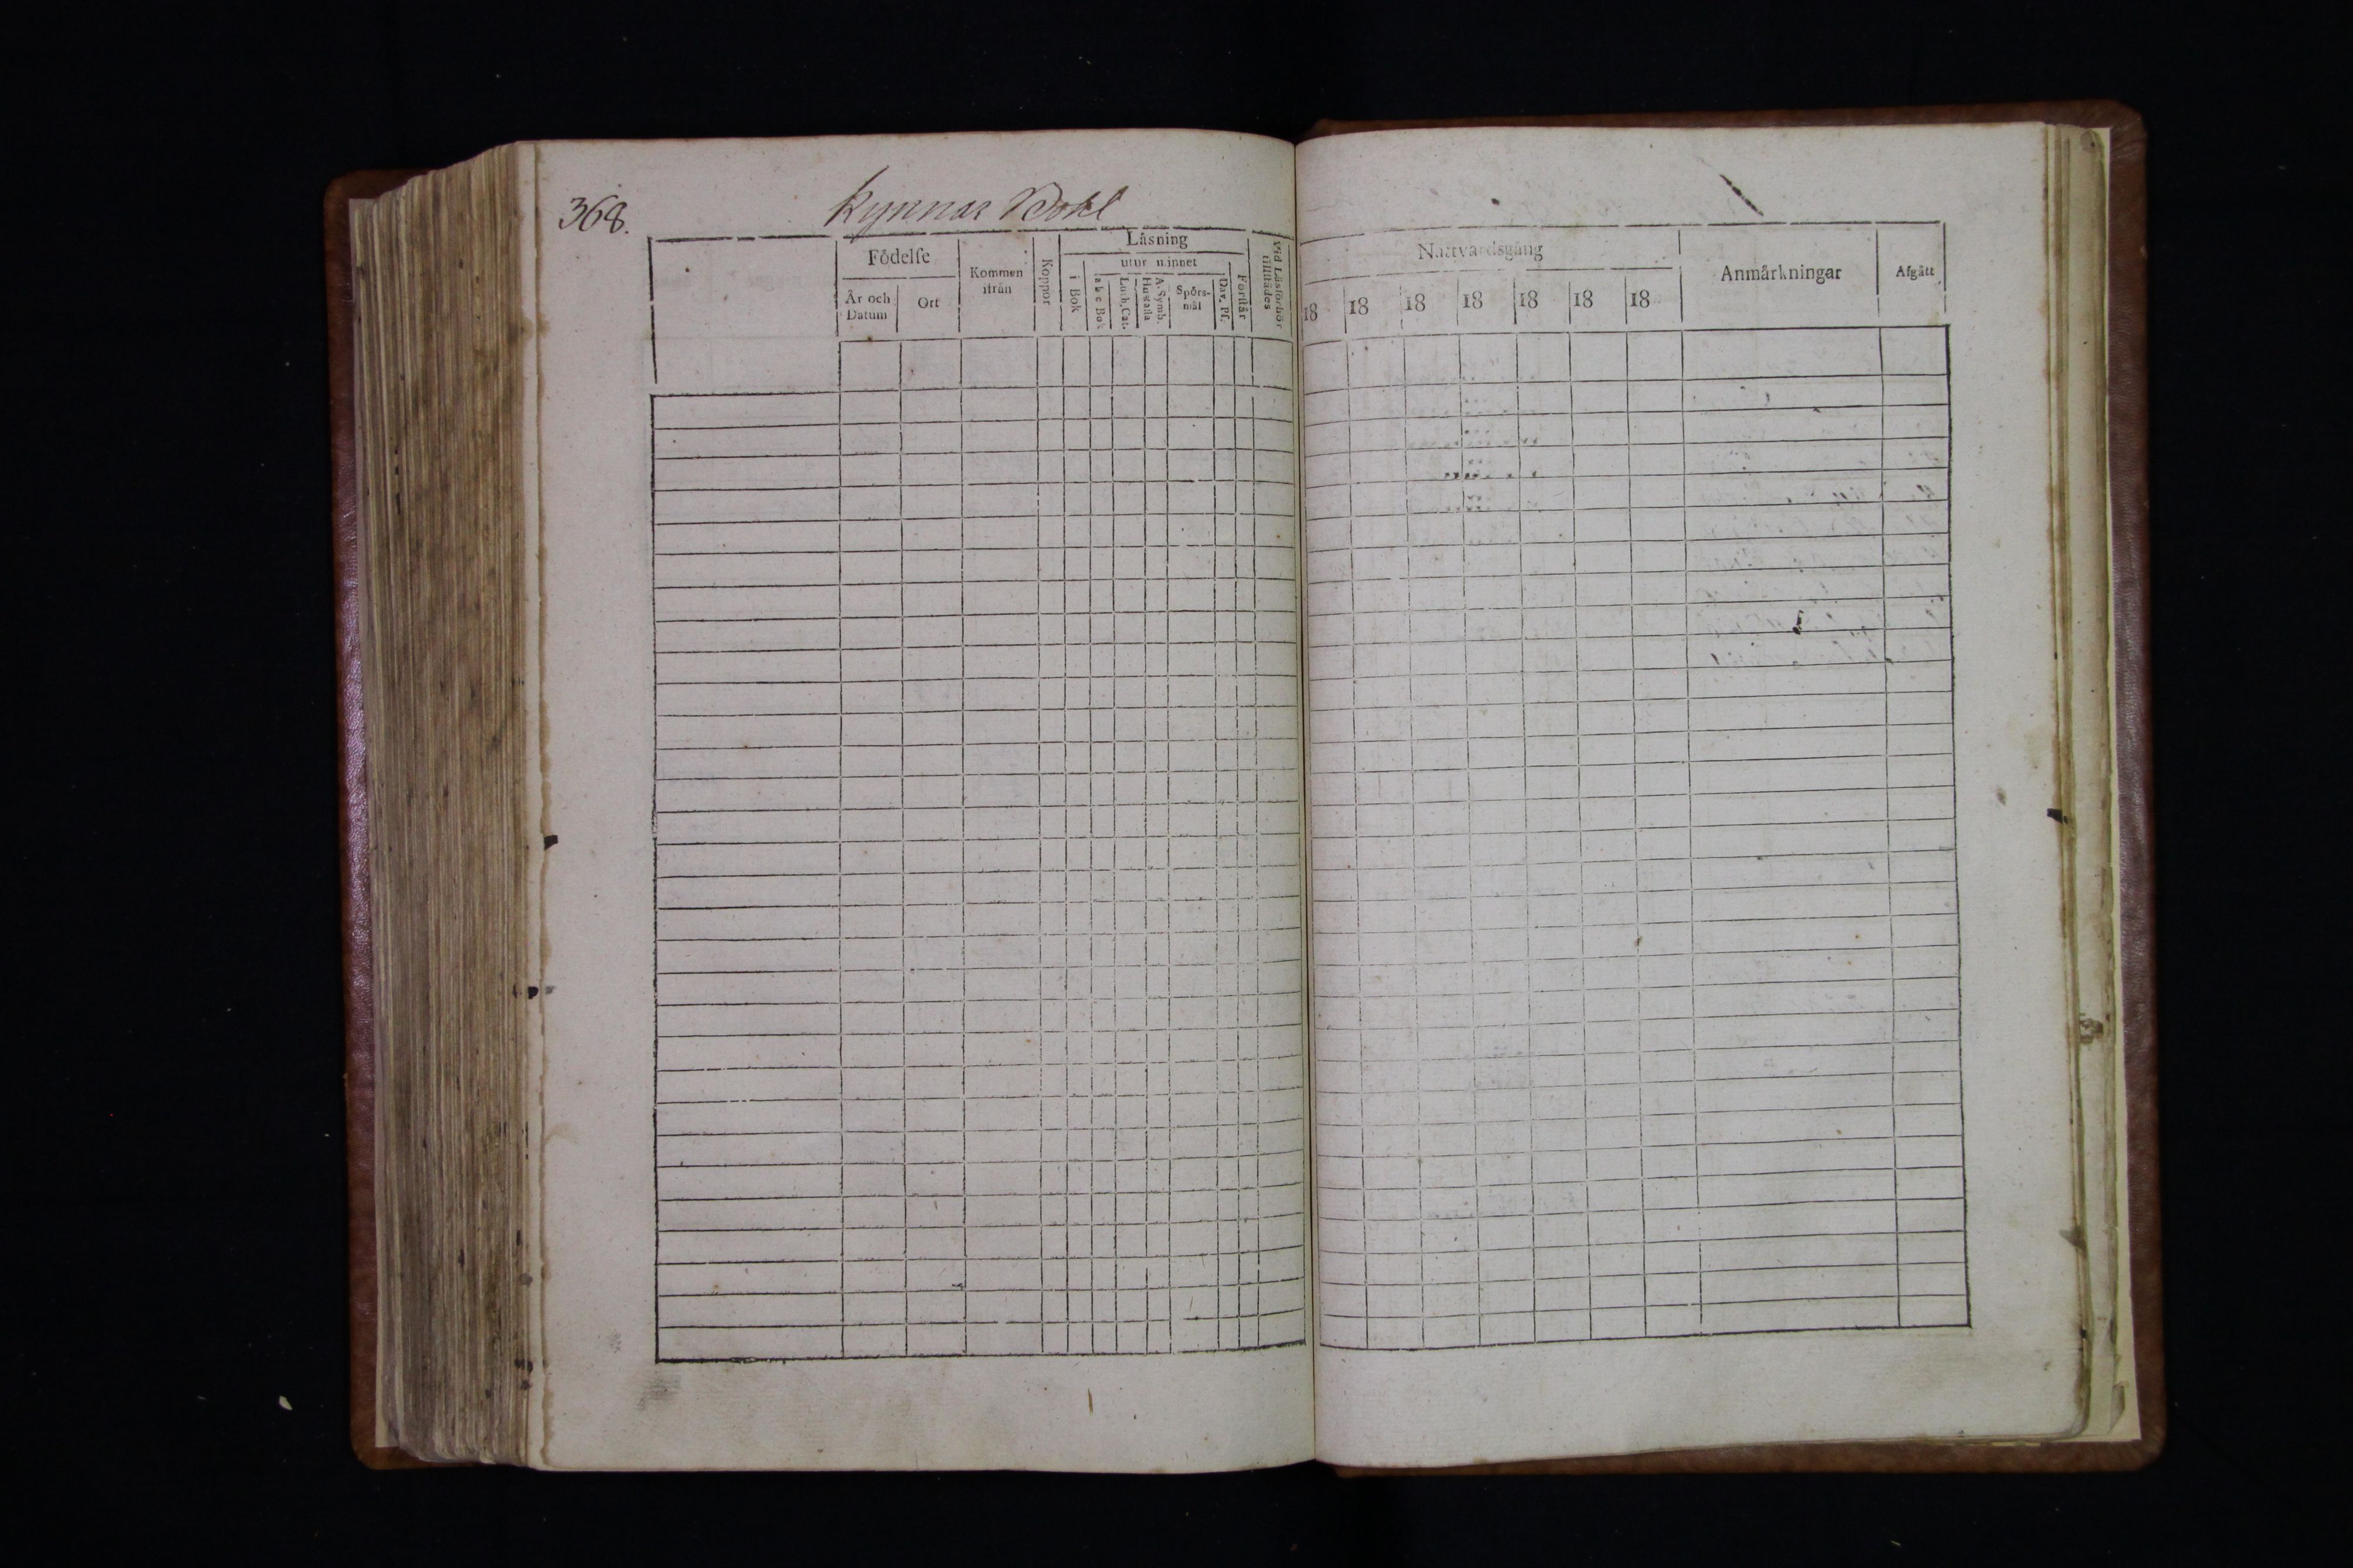 368.
Kynnar Bohl
Födelse
Kommen ifrån
Koppor
Läsning
utur minnet
Vid Läsförhör tillstädes
År och Datum
Ort
i Bok
a b c Bok
Luth. Cat.
A. Symb. Hustafla
Spörs-mål
Dav. Ps.
Förstår
Nattvardsgång
Anmärkningar
Afgått
18 18 18 18 18 18 18